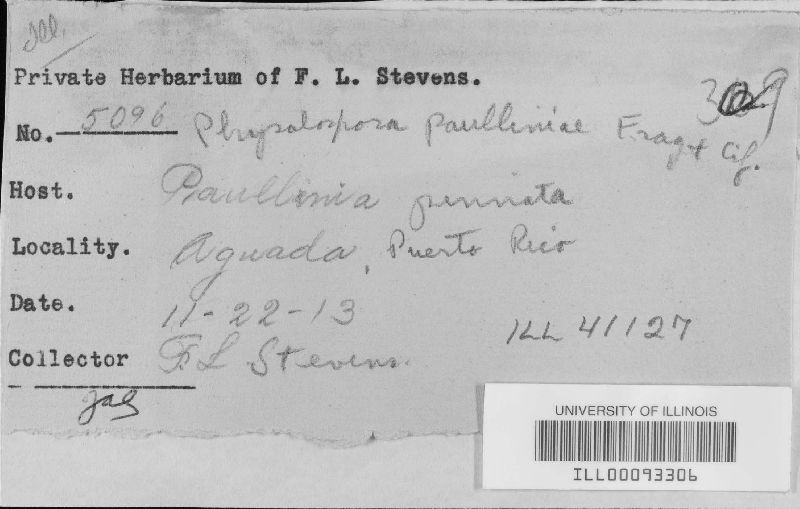 Ill.
Private Herbarium of F. L. Stevens.
309
No. 5096 Physalospora paulliniae Frag & Cif.
Host. Paullinia pinnata
Locality. Aguada, Puerto Rico
Date. 11-22-13
ILL 41127
Collector F. L. Stevens.
UNIVERSITY OF ILLINOIS
ILL00093306